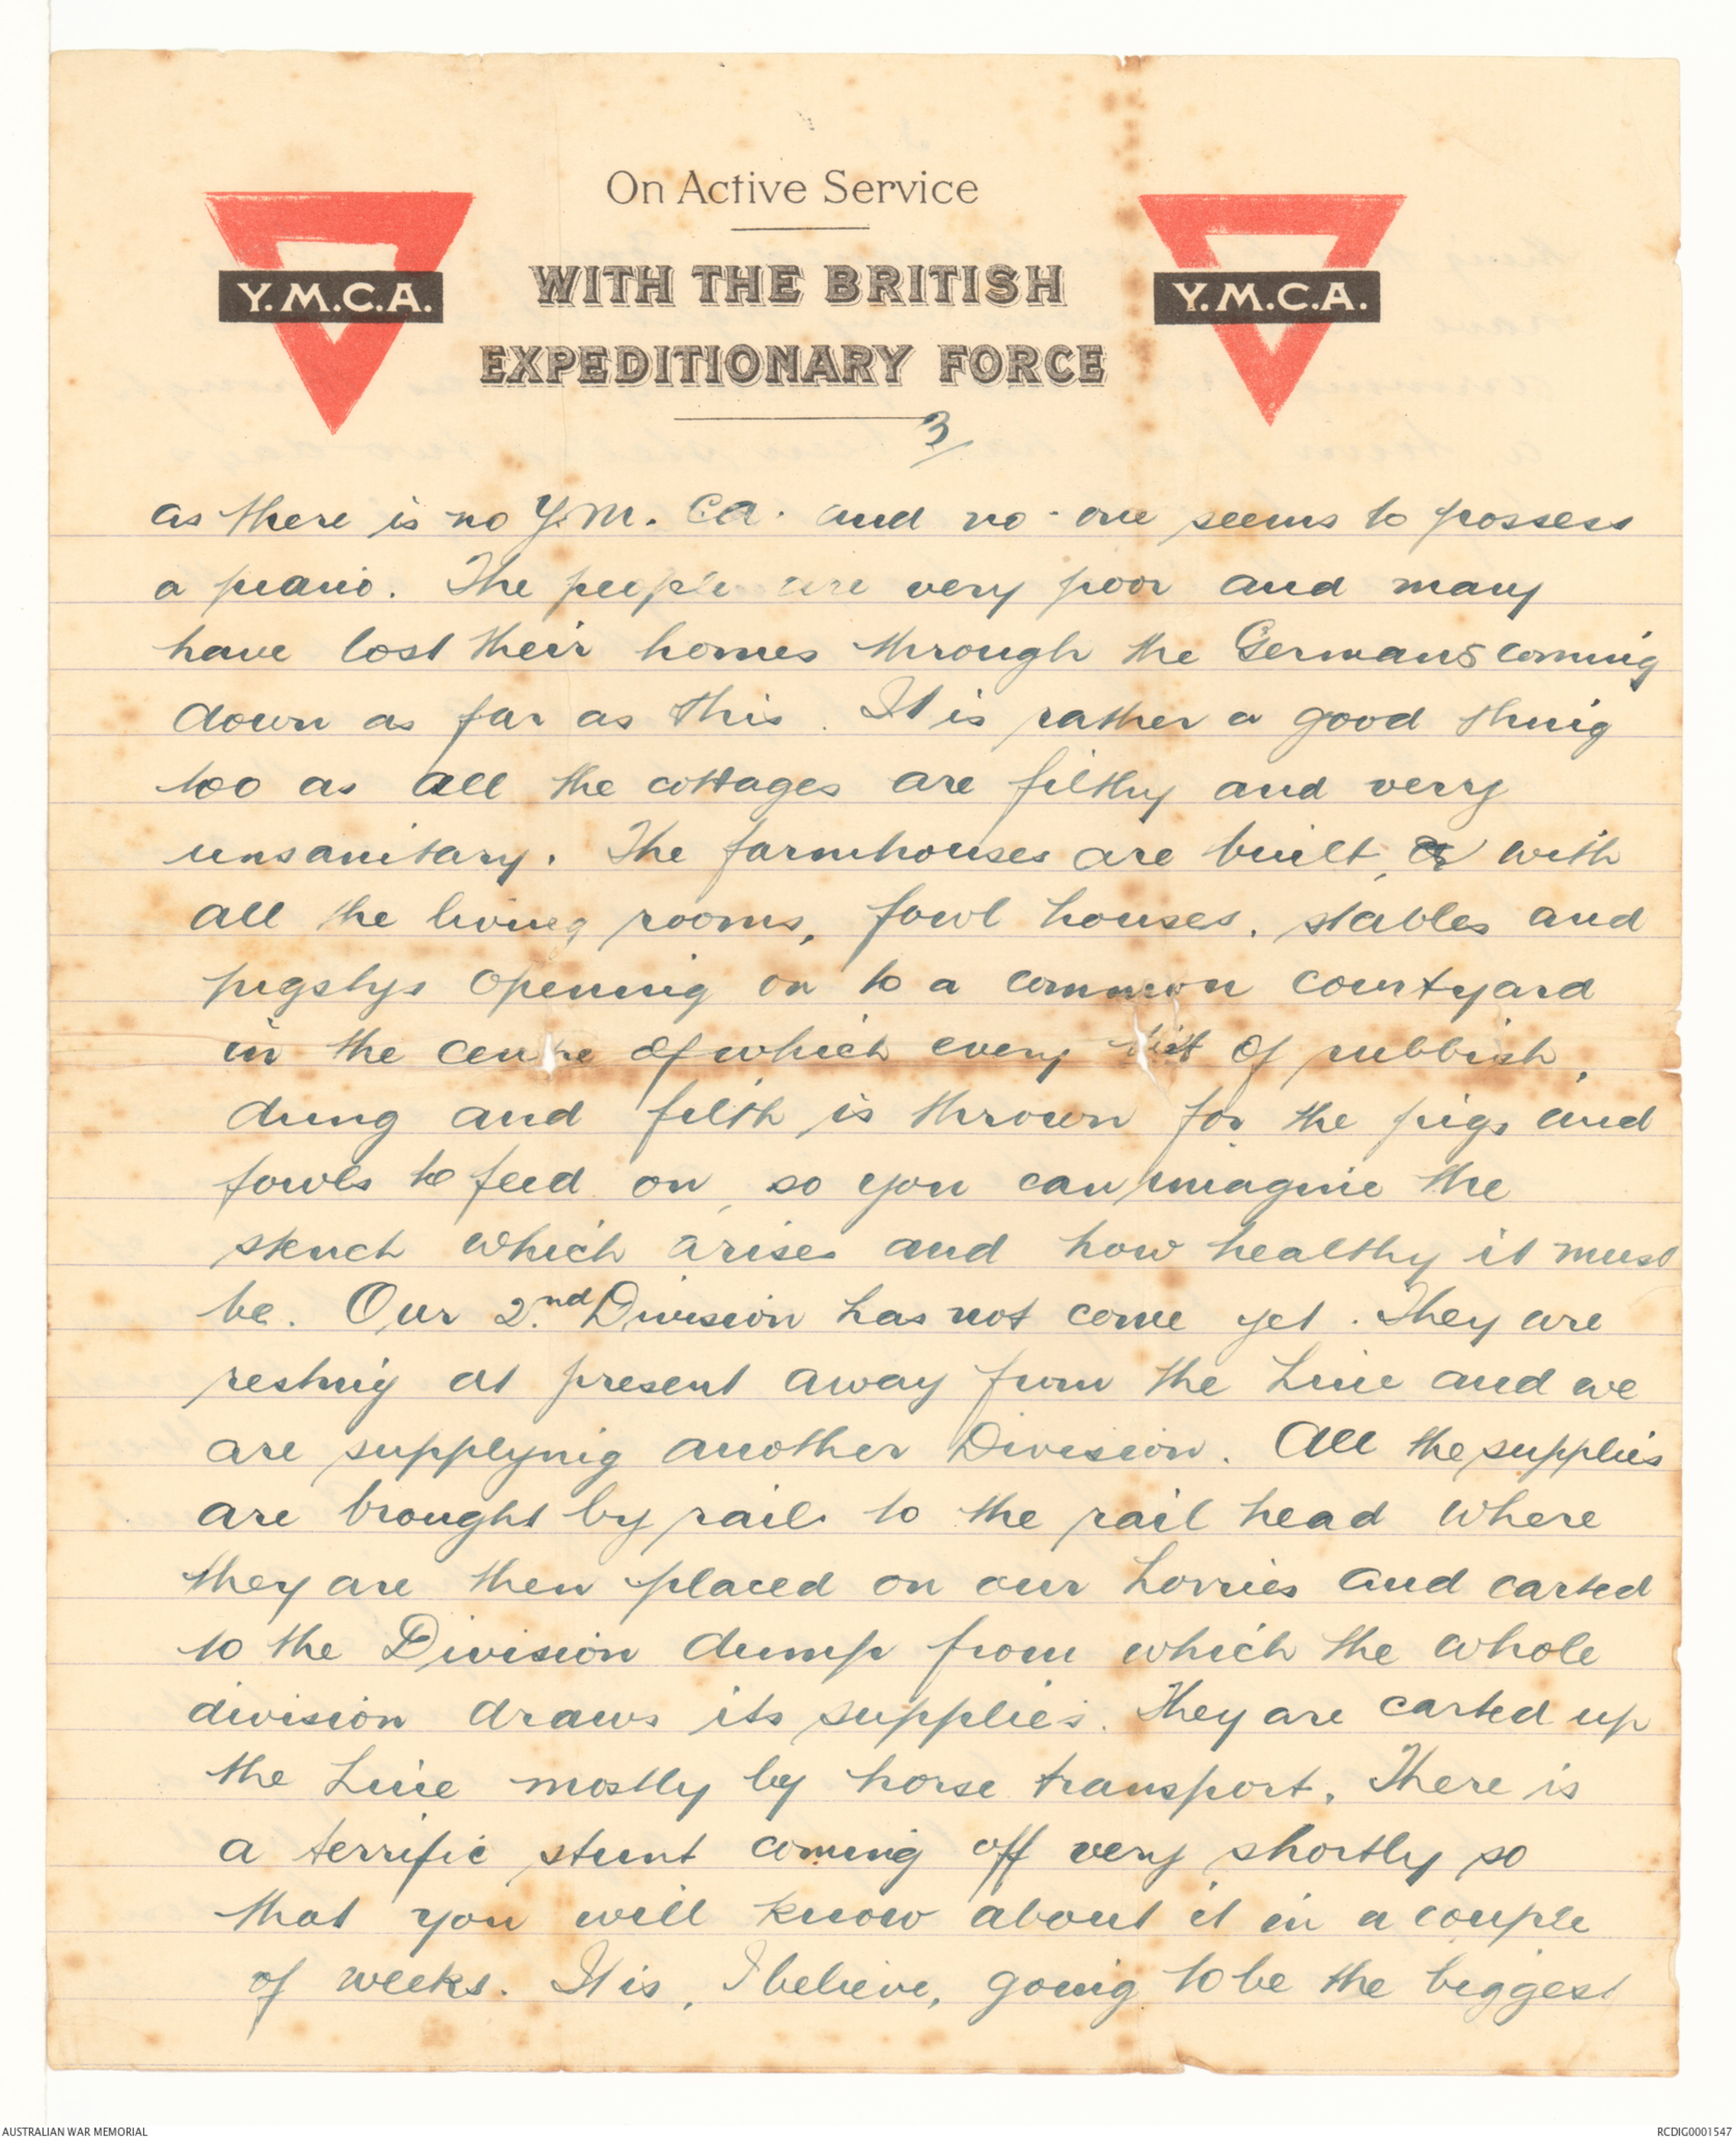 On Active Service
WITH THE BRITISH
EXPEDITIONARY FORCE
Y.M.C.A.
Y.M.C.A.
3/
as there is no Y.M.C.A. and no-one seems to possess
a piano. The people are very poor and many
have lost their homes through the Germans coming
down as far as this. It is rather a good thing
too as all the cottages are filthy and very
unsanitary. The farmhouses are built, with
all the living rooms, fowl houses, stables and
pigstys opening on to a common courtyard
in the centre of which every bit of rubbish,
dung and filth is thrown for the pigs and
fowls to feed on, so you can imagine the
stench which arises and how healthy it must
be. Our 2nd Division has not come yet. They are
resting at present away from the Line and we
are supplying another Division. All the supplies
are brought by rail to the rail head where
they are then placed on our Lorries and carted
to the Division dump from which the whole
division draws its supplies. They are carted up
the Line mostly by horse transport. There is
a terrific stunt coming off very shortly so
that you will know about it in a couple
of weeks. It is, I believe, going to be the biggest
AUSTRALIAN WAR MEMORIAL
RCDIG0001547